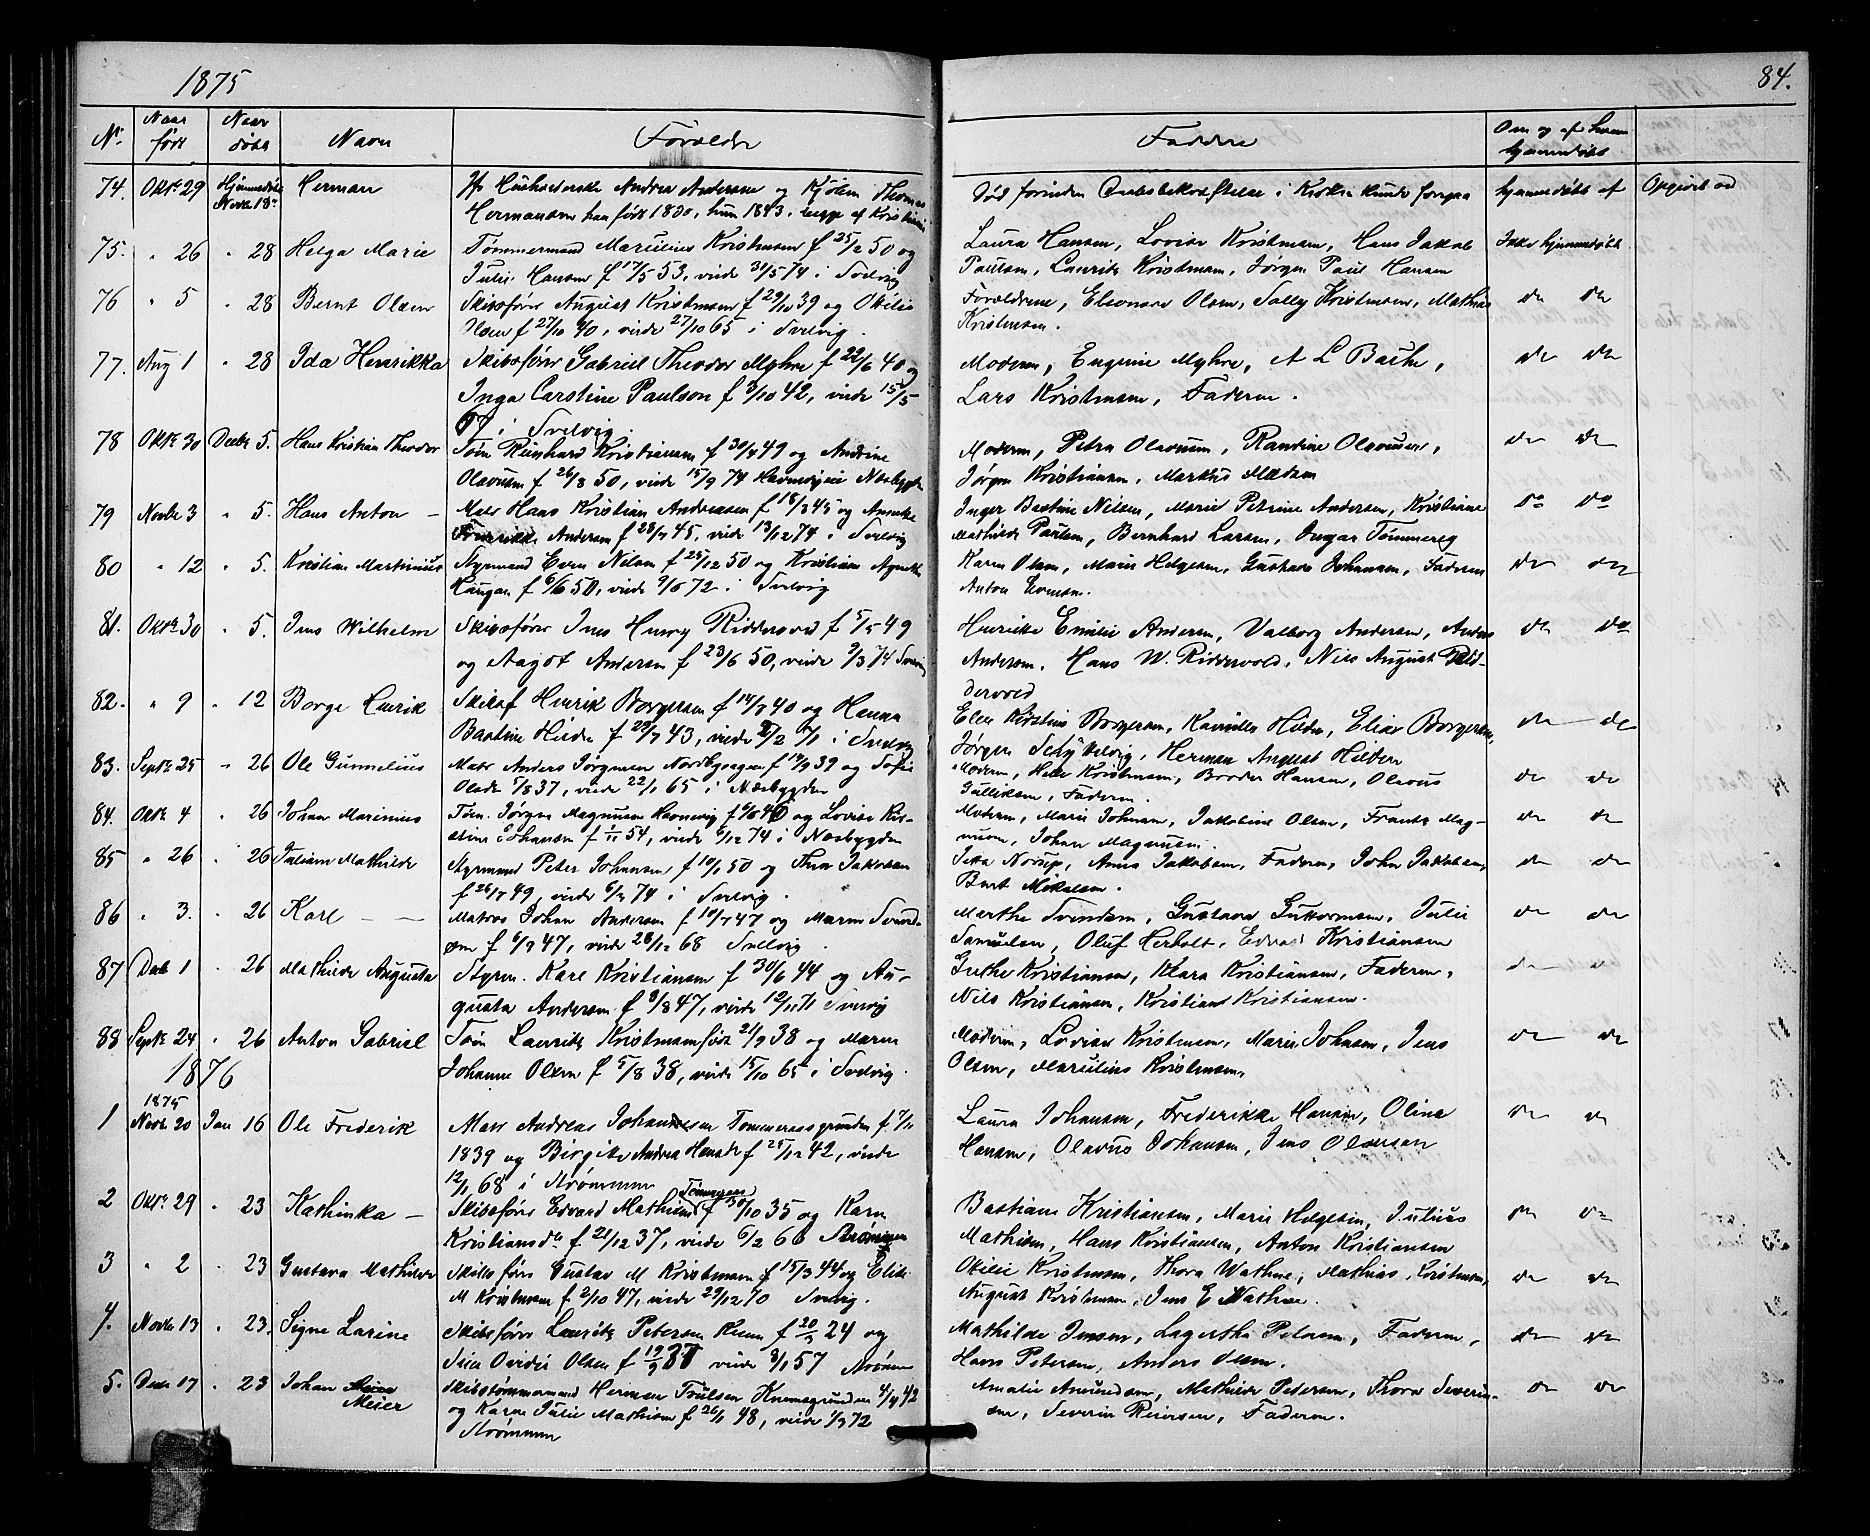 1875
84.
No. Naar født Naar døbt Navn Forældre Faddere Om og af hvem hjemmedøbt
74. Oktr. 29 Hjemmedøbt Novbr 18de Herman Husholderske Andrea Andersen og Thomas Død forinden i Kirken kunde foregaa hjemmedøbt af
Hermansen han født 1830, hun 1843, begge af
75. " 26 " 28 Helga Marie Tømmermand Marulius Kristensen f 25/2 50 og Laura Hansen, Lovise Kristensen, Hans Jakob Ikke hjemmedøbt
Julie Hansen f 17/5 53, viede 31/5 74 i Svelvig Paulsen, Laurits Kristensen, Jørgen Paul Hansen
76 " 5 " 28 Bernt Olsen Skibsfører August Kristensen f 29/10 39 og Otilie Forældrene, Eleonare Olsen, Sally Kristensen, Mathias do do
Olsen f 27/10 40, viede 27/10 65 i Svelvig. Kristensen.
77. Aug 1 " 28 Ida Henrikka Skibsfører Gabriel Theodor Myhre f 22/6 40 og Moderen, Eugenie Myhre, A L Bache, do do
Inga Carstine Paulson f 3/10 42, viede 15/5 Lars Kristensen, Faderen.
67 i Svelvig.
78 Oktr 30 Decbr 5. Hans Kristian Theodor Tøm Reinhard Kristiansen f 30/4 49 og Andrine Moderen, Petra Olavusen, Randine Olavusen, do do
Olavusen f 26/8 50, viede 15/9 74 Nesbygden Jørgen Kristiansen, Markus Madsen
79 Novbr 3 " 5. Hans Anton — Matr Hans Kristian Andreasen f 18/3 45 og Inger Bastine Nilsen, Marie Petrine Andersen, Kristiane do do
Fredrikke Andersen f 28/7 45, viede 13/12 74 i Svelvig Mathilde Paulsen, Bernhard Larsen, Tømmereg
80 " 12 " 5. Kristian Martinius Styrmand Even Nilsen f 25/12 50 og Kristiane Agnethe Karen Olsen, Marie Helgesen, Gustava Johansen, Faderen do do
Haugan f 6/6 50, viede 9/6 72. i Svelvig Anton Evensen.
81. Oktr 30 " 5. Jens Wilhelm Skibsfører Jens Henry Riddervold f 5/5 49 Henrikke Emilie Andersen, Valborg Andersen, Anders do do
og Aagot Andersen f 23/6 50, viede 9/3 74 Svelvig Andersen, Hans W. Riddervold, Nils August Rid-
dervold
82. " 9 " 12 Borge Henrik Skibsf Henrik Borgersen f 14/7 40 og Hanna Elen Kirstine Borgersen, Kamilla Hilden, Elias Borgersen, do do
Bastine Hilden f 29/7 43, viede 2/2 71 i Svelvig Jørgen Herman August Hilden
83. Septr 25 " 26 Ole Gunnelius Matr Anders Jørgensen f 14/9 39 og Sofie Moderen, Helle Kristensen, Brodar Hansen, Olavus do do
Olsdt 5/8 37, viede 22/1 65 i Næsbygden Gulliksen, Faderen.
84. Oktr 4 " 26 Johan Marinius Tøm. Jørgen Magnusen Havnevig f 6/6 46 og Lovise Kir- Moderen, Marie Johnsen, Jakobine Olsen, Frants Mag- do do
stine Johansen f 1/11 54, viede 6/12 74 i Næsbygden nusen, Johan Magnusen.
85 " 26 " 26 Juliane Mathilde Styrmand Peter Johansen f 10/1 50 og Thea Jakobsen Jetta Norup, Anna Jakobsen, Faderen, John Jakobsen, do do
f 26/7 49, viede 6/2 74 i Svelvig. Bernt Mikelsen.
86 " 3. " 26 Karl — — Matros Johan Andersen f 10/7 47 og Maren Svend- Marthe Svendsen, Gustava Guttormsen, Julie do do
sen f 6/9 47, viede 28/12 68 Svelvig. Samuelsen, Oluf Herbolt, Edvard Kristiansen
87 Decb 1 " 26 Mathilde Augusta Styrm. Karl Kristiansen f 30/6 44 og Au- Grethe Kristiansen, Klara Kristiansen, Faderen, do do
gusta Andersen f 3/8 47, viede 12/11 71 Svelvig Nils Kristiansen, Kristian Kristiansen.
88 Septr 24 " 26 Anton Gabriel Tøm Laurits Kristensen født 21/9 38 og Maren Moderen, Lovise Kristensen, Marie Johnsen, Jens do do
Johanne Olsen f 5/8 38, viede 15/10 65 i Svelvig. Olsen, Marulius Kristensen.
1876
1875
1 Novbr 20 Jan 16 Ole Frederik Matr Andreas Johannesen Tømmeraasgrunden f 7/11 Laura Johansen, Frederikke Hansen, Olina do do
1839 og Birgithe Andrea Hansdt f 25/12 42, viede Hansen, Olavus Johansen, Jens Olversen
12/1 68 i Strømmen
2 Oktr. 29 " 23 Kathinka — Skibsfører Edvard Mathisen f 30/10 35 og Karen Bastiane Kristiansen, Marie Helgesen, Julius do do
Kristiansdr f 21/12 37, viede 6/2 60 Strømmen Mathisen, Hans Kristiansen, Anton Kristiansen
3 " 2 " 23 Gustava Mathilde Skibsfører Gustav M Kristensen f 15/3 44 og Elise Otilie Kristensen, Thora Wathne, Mathias Kristensen, do do
M Kristensen f 2/10 47, viede 29/12 70 Svelvig. August Kristensen, Jens E Wathne.
4. Novbr 13 " 23. Signe Larine Skibsfører Laurits Petersen f 20/3 24 og Mathilde Jensen, Lagertha Petersen, Faderen, do do
Olsen f 19/9 37 viede 3/1 57 Strømmen Hans Petersen, Anders Olsen.
5. Decbr 17 " 23 Johan Meier Skibstømmermand Herman Trulsen 4/4 42 Amalie Amundsen, Mathilde Petersen, Thora Severin- do do
og Karen Julie Mathisen f 26/1 48, viede 1/3 72 sen, Severin Reiersen, Faderen.
Strømmen